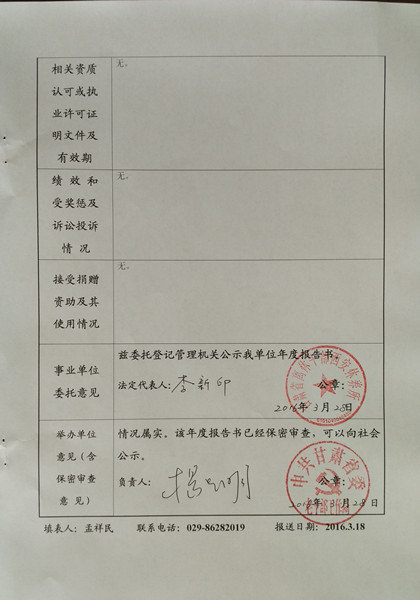 相关资质
认可或执
业许可证
明文件及
有效期
无。
绩效和
受奖惩及
诉讼投诉
情况
无。
接受捐赠
资助及其
使用情况
无。
事业单位
委托意见
兹委托登记管理机关公示我单位年度报告书。
法定代表人：李新印 公章：
2016年3月28日
举办单位
意见（含
保密审查
意见）
情况属实。该年度报告书已经保密审查，可以向社会
公示。
负责人： 公章：
月28日
中共甘肃省委
填表人：孟祥民 联系电话：029-86282019 报送日期：2016.3.18